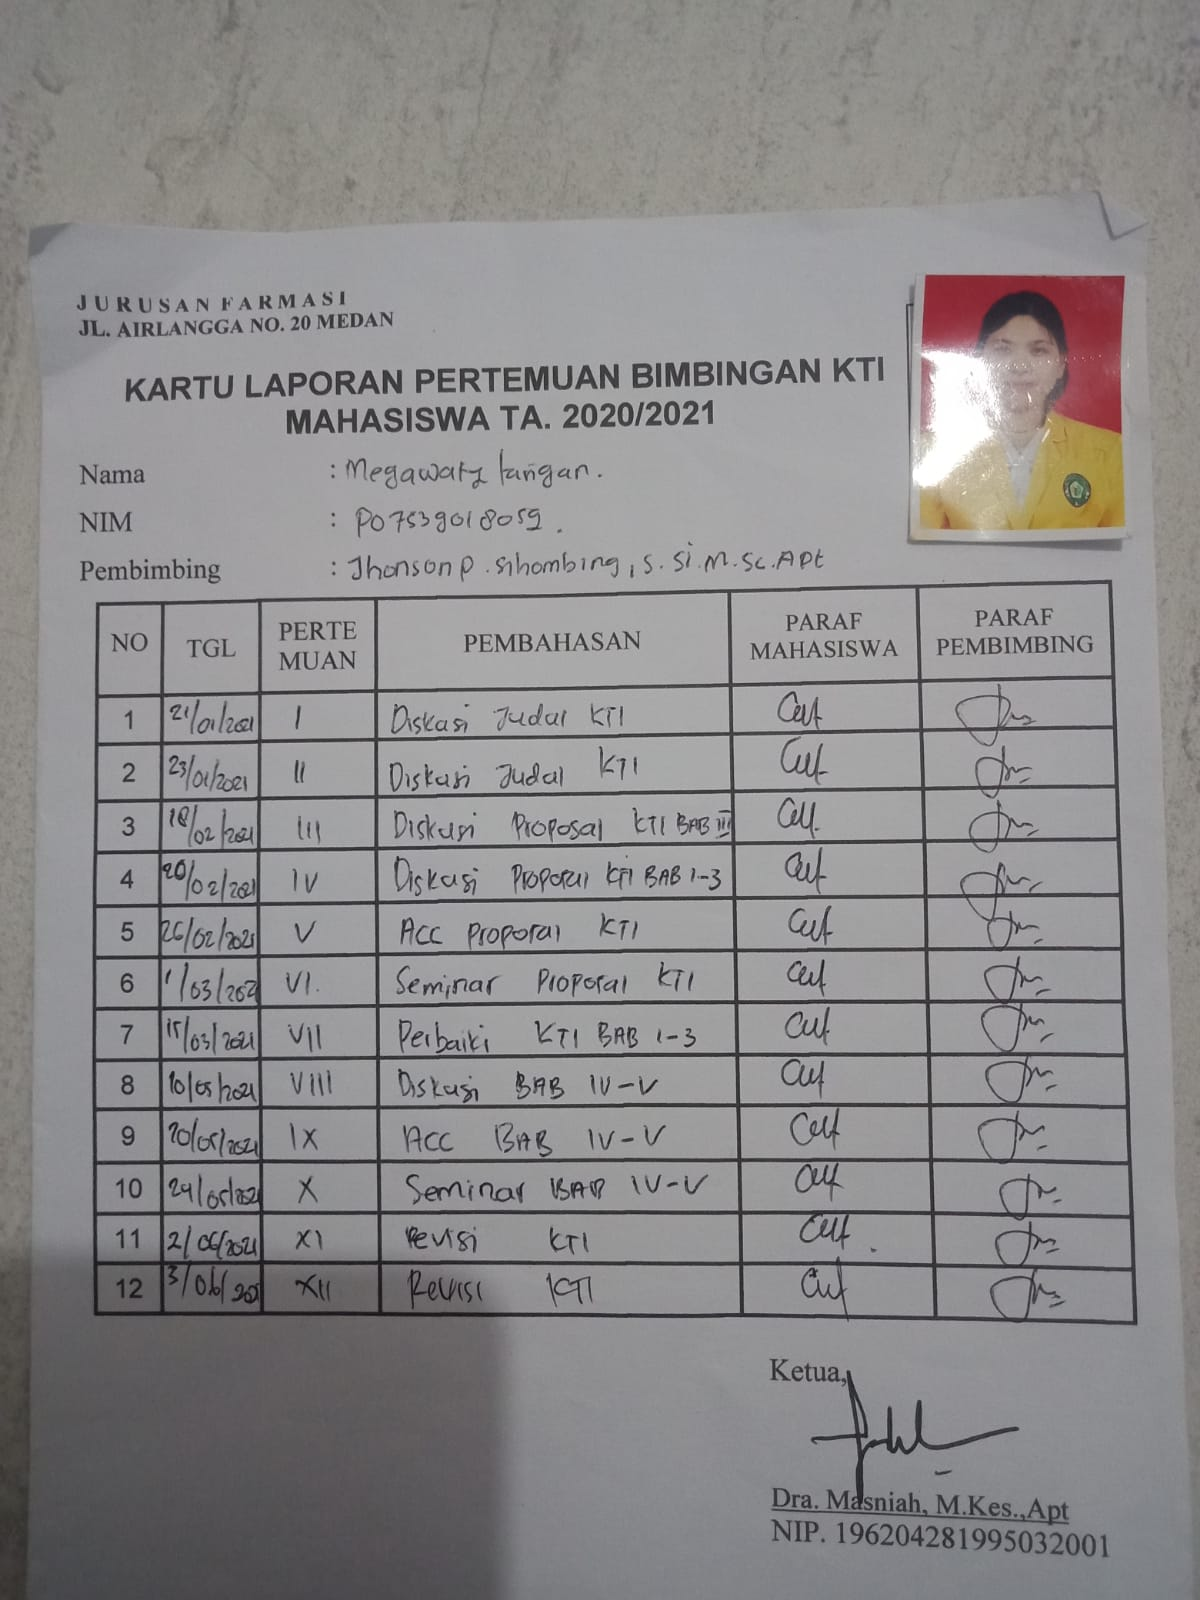 JURUSAN FARMASI
JL. AIRLANGGA NO. 20 MEDAN
KARTU LAPORAN PERTEMUAN BIMBINGAN KTI
MAHASISWA TA. 2020/2021
Nama : Megawaty
NIM : P07539018059.
Pembimbing : Jhonson P. Sihombing, S. Si. M. Sc. Apt
NO TGL PERTE MUAN PEMBAHASAN PARAF MAHASISWA PARAF PEMBIMBING
1 21/01/2021 I Diskusi Judul KTI
2 23/01/2021 II Diskusi Judul KTI
3 18/02/2021 III Diskusi Proposal KTI BAB III
4 20/02/2021 IV Diskusi Proposal KTI BAB 1-3
5 26/02/2021 V Acc Proposal KTI
6 1/03/202 VI. Seminar Proposal KTI
7 15/03/2021 VII Perbaiki KTI BAB 1-3
8 10/05/2021 VIII Diskusi BAB IV-V
9 20/05/2021 IX Acc BAB IV-V
10 29/05/2021 X Seminar BAB IV-V
11 2/06/2021 XI Revisi KTI
12 3/06/202 XII Revisi KTI
Ketua,
Dra. Masniah, M.Kes.,Apt
NIP. 196204281995032001